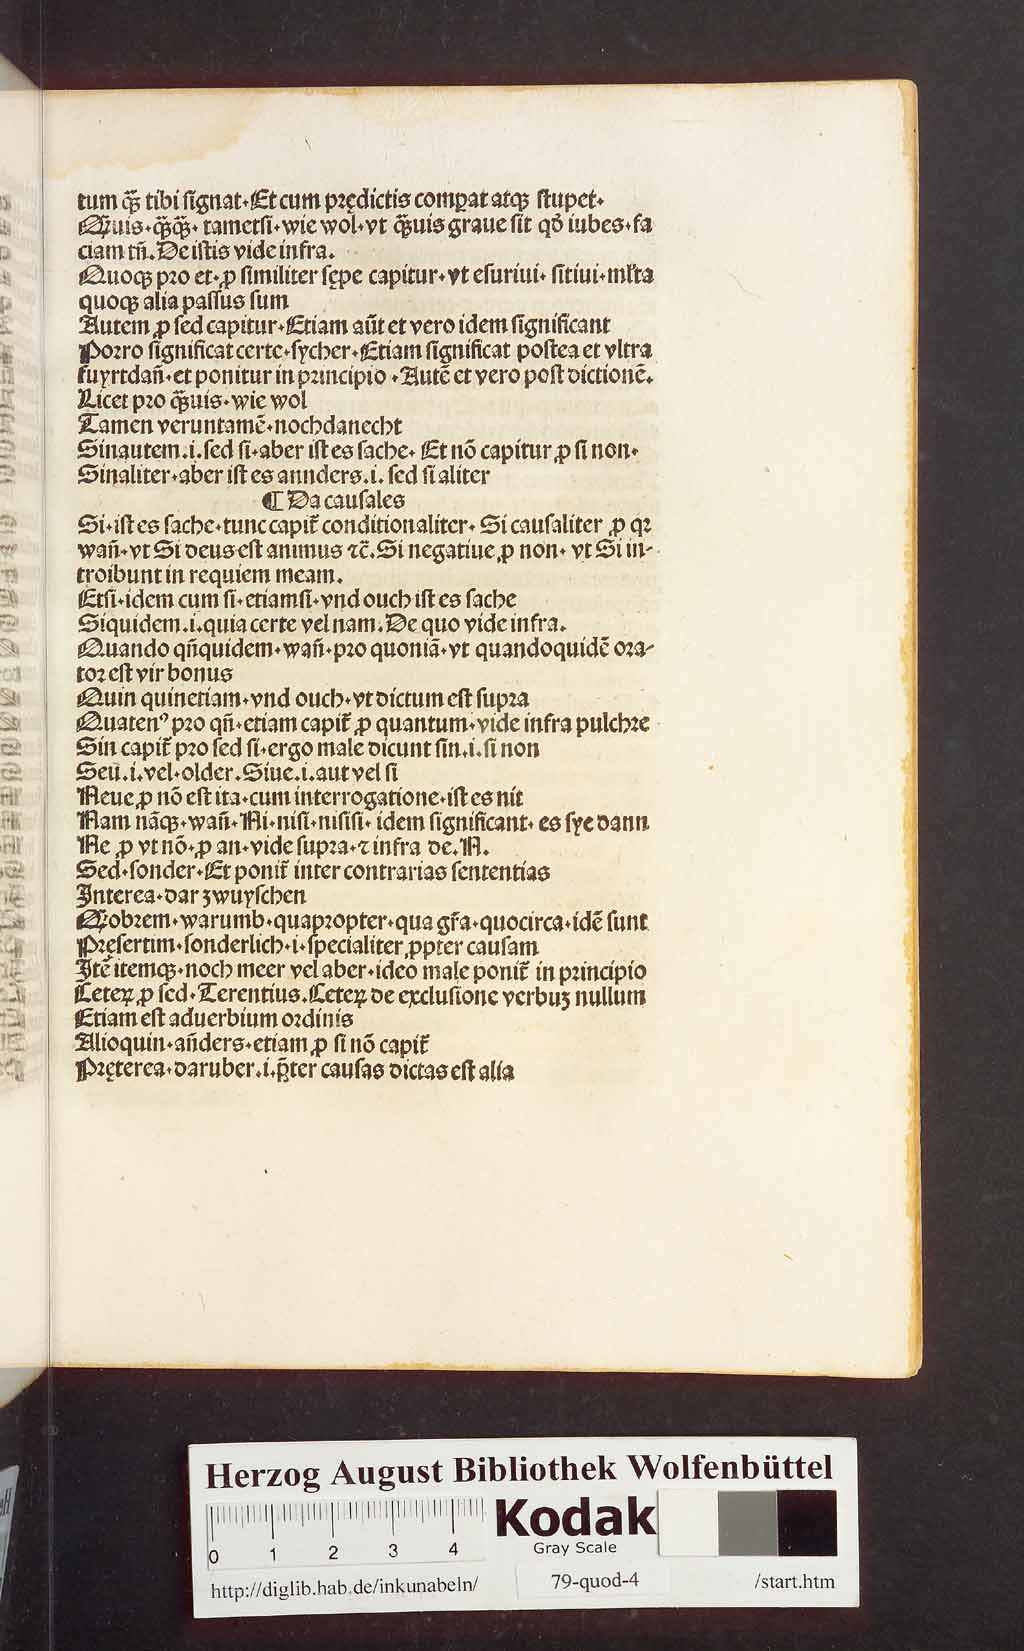 tum qͣ̄ tibi ſignat. Et cum prędictis comꝑat atqꝫ ſtupet.
Qͣ̄uis. qͣ̄qͣ̄. tametſi. wie wol. vt qͣ̄uis graue ſit qđ iubes. fa
ciam tñ. De iſtis vide infra.
Quoqꝫ pro et. ꝓ ſimiliter ſępe capitur. vt eſuriui. ſitiui. ml̃ta
quoqꝫ alia paſſus ſum
Autem ꝓ ſed capitur. Etiam aũt et vero idem ſignificant
Porro ſignificat certe. ſycher. Etiam ſignificat poſtea et vltra
fuyrtdañ. et ponitur in principio. Autē et vero poſt dictionē.
Licet pro qͣ̄uis. wie wol
Tamen veruntamē. nochdanecht
Sinautem. i. ſed ſi. aber iſt es ſache. Et nō capitur ꝓ ſi non.
Sinaliter. aber iſt es annders. i. ſed ſi aliter
¶ Da cauſales
Si. iſt es ſache. tunc capit̃ conditionaliter. Si cauſaliter ꝓ qꝛ
wañ. vt Si deus eſt animus ⁊c̃. Si negatiue ꝓ non. vt Si in-
troibunt in requiem meam.
Etſi. idem cum ſi. etiamſi. vnd ouch iſt es ſache
Siquidem. i. quia certe vel nam. De quo vide infra.
Quando qñquidem. wañ. pro quoniã. vt quandoquidē ora-
tor eſt vir bonus
Quin quinetiam. vnd ouch. vt dictum eſt ſupra
Quatenꝰ pro qñ. etiam capit̃ ꝓ quantum. vide infra pulchre
Sin capit̃ pro ſed ſi. ergo male dicunt ſin. i. ſi non
Seū. i. vel. older. Siue. i. aut vel ſi
Neue ꝓ nō eſt ita. cum interrogatione. iſt es nit
Nam nāqꝫ. wañ. Ni. niſi. niſiſi. idem ſignificant. es ſye dann
Ne ꝓ vt nō. ꝓ an. vide ſupra. ⁊ infra de. N.
Sed. ſonder. Et ponit̃ inter contrarias ſententias
Interea. dar zwuyſchen
Qͣ̄obrem. warumb. quapropter. qua gr̃a. quocirca. idē ſunt
Pręſertim. ſonderlich. i. ſpecialiter ꝓpter cauſam
Itē itemqꝫ. noch meer vel aber. ideo male ponit̃ in principio
Ceteꝝ ꝓ ſed. Terentius. Ceteꝝ de excluſione verbuꝫ nullum
Etiam eſt aduerbium ordinis
Alioquin. añders. etiam ꝓ ſi nō capit̃
Pręterea. daruber. i. p̄ter cauſas dictas eſt alia
Herzog August Bibliothek Wolfenbüttel
0 1 2 3 4
Kodak
Gray Scale
http://diglib.hab.de/inkunabeln/ 79-quod-4 /start.htm